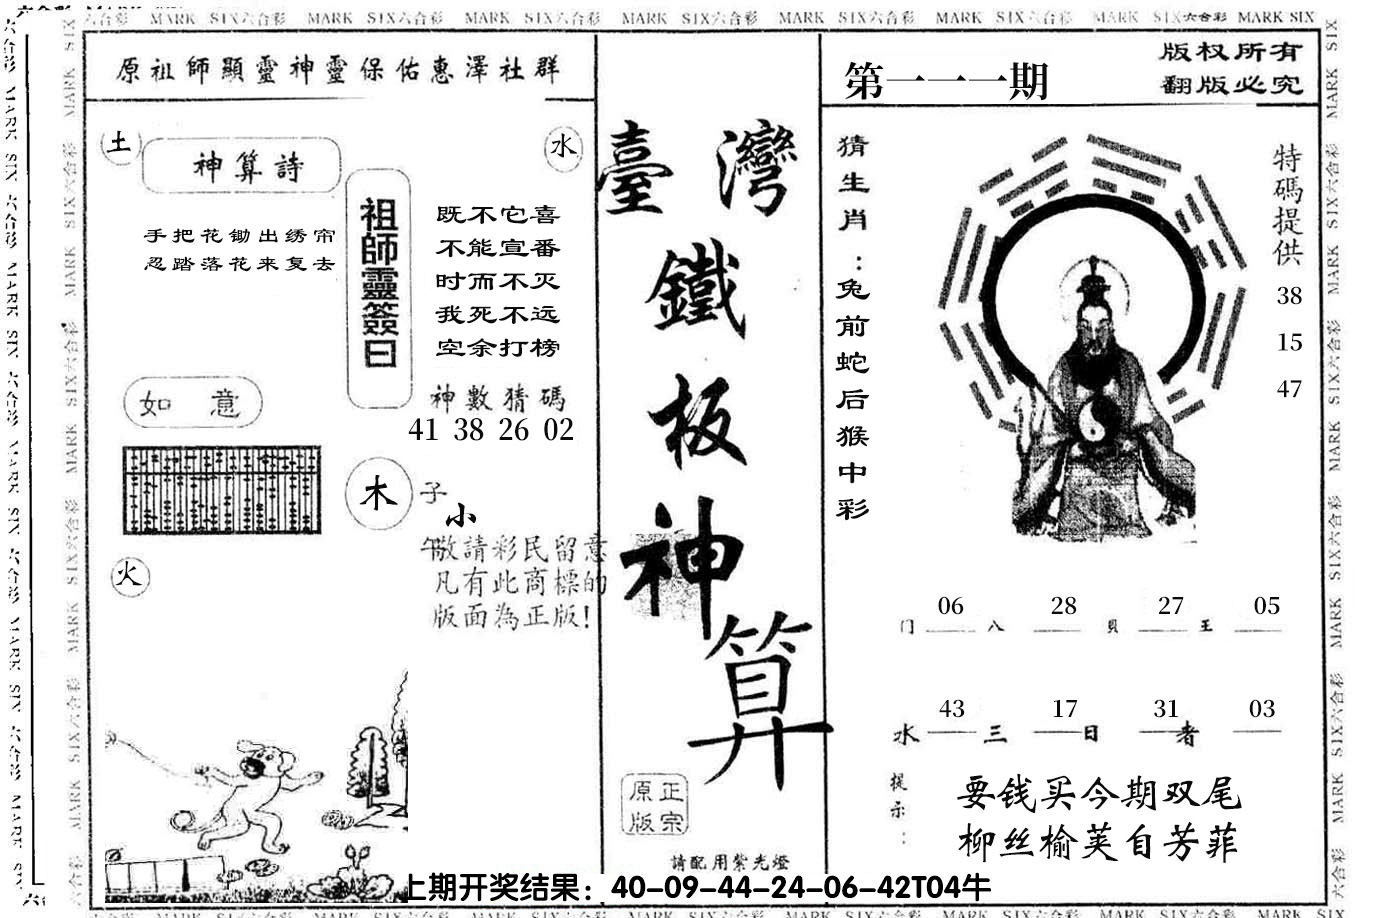 MARK SIX六合彩 MARK SIX六合彩 MARK SIX六合彩 MARK SIX六合彩 MARK SIX六合彩 MARK SIX六合彩 MARK SIX六合彩 MARK SIX
原祖師顯靈神靈保佑惠澤社群
土
神算詩
水
手把花锄出绣帘
忍踏落花来复去
祖師靈簽曰
既不它喜
不能宣番
时而不灭
我死不远
空余打榜
神數猜碼
41 38 26 02
如 意
木
子
小
午
敬請彩民留意
凡有此商標的
版面為正版!
火
臺灣
鐵
板
神
算
正宗
原版
請配用紫光燈
第一一一期
版权所有
翻版必究
猜生肖:兔前蛇后猴中彩
特碼提供
38
15
47
06 28 27 05
门 八 貝 王
43 17 31 03
水 三 日 者
提示:
要钱买今期双尾
柳丝榆荚自芳菲
上期开奖结果：40-09-44-24-06-42T04牛